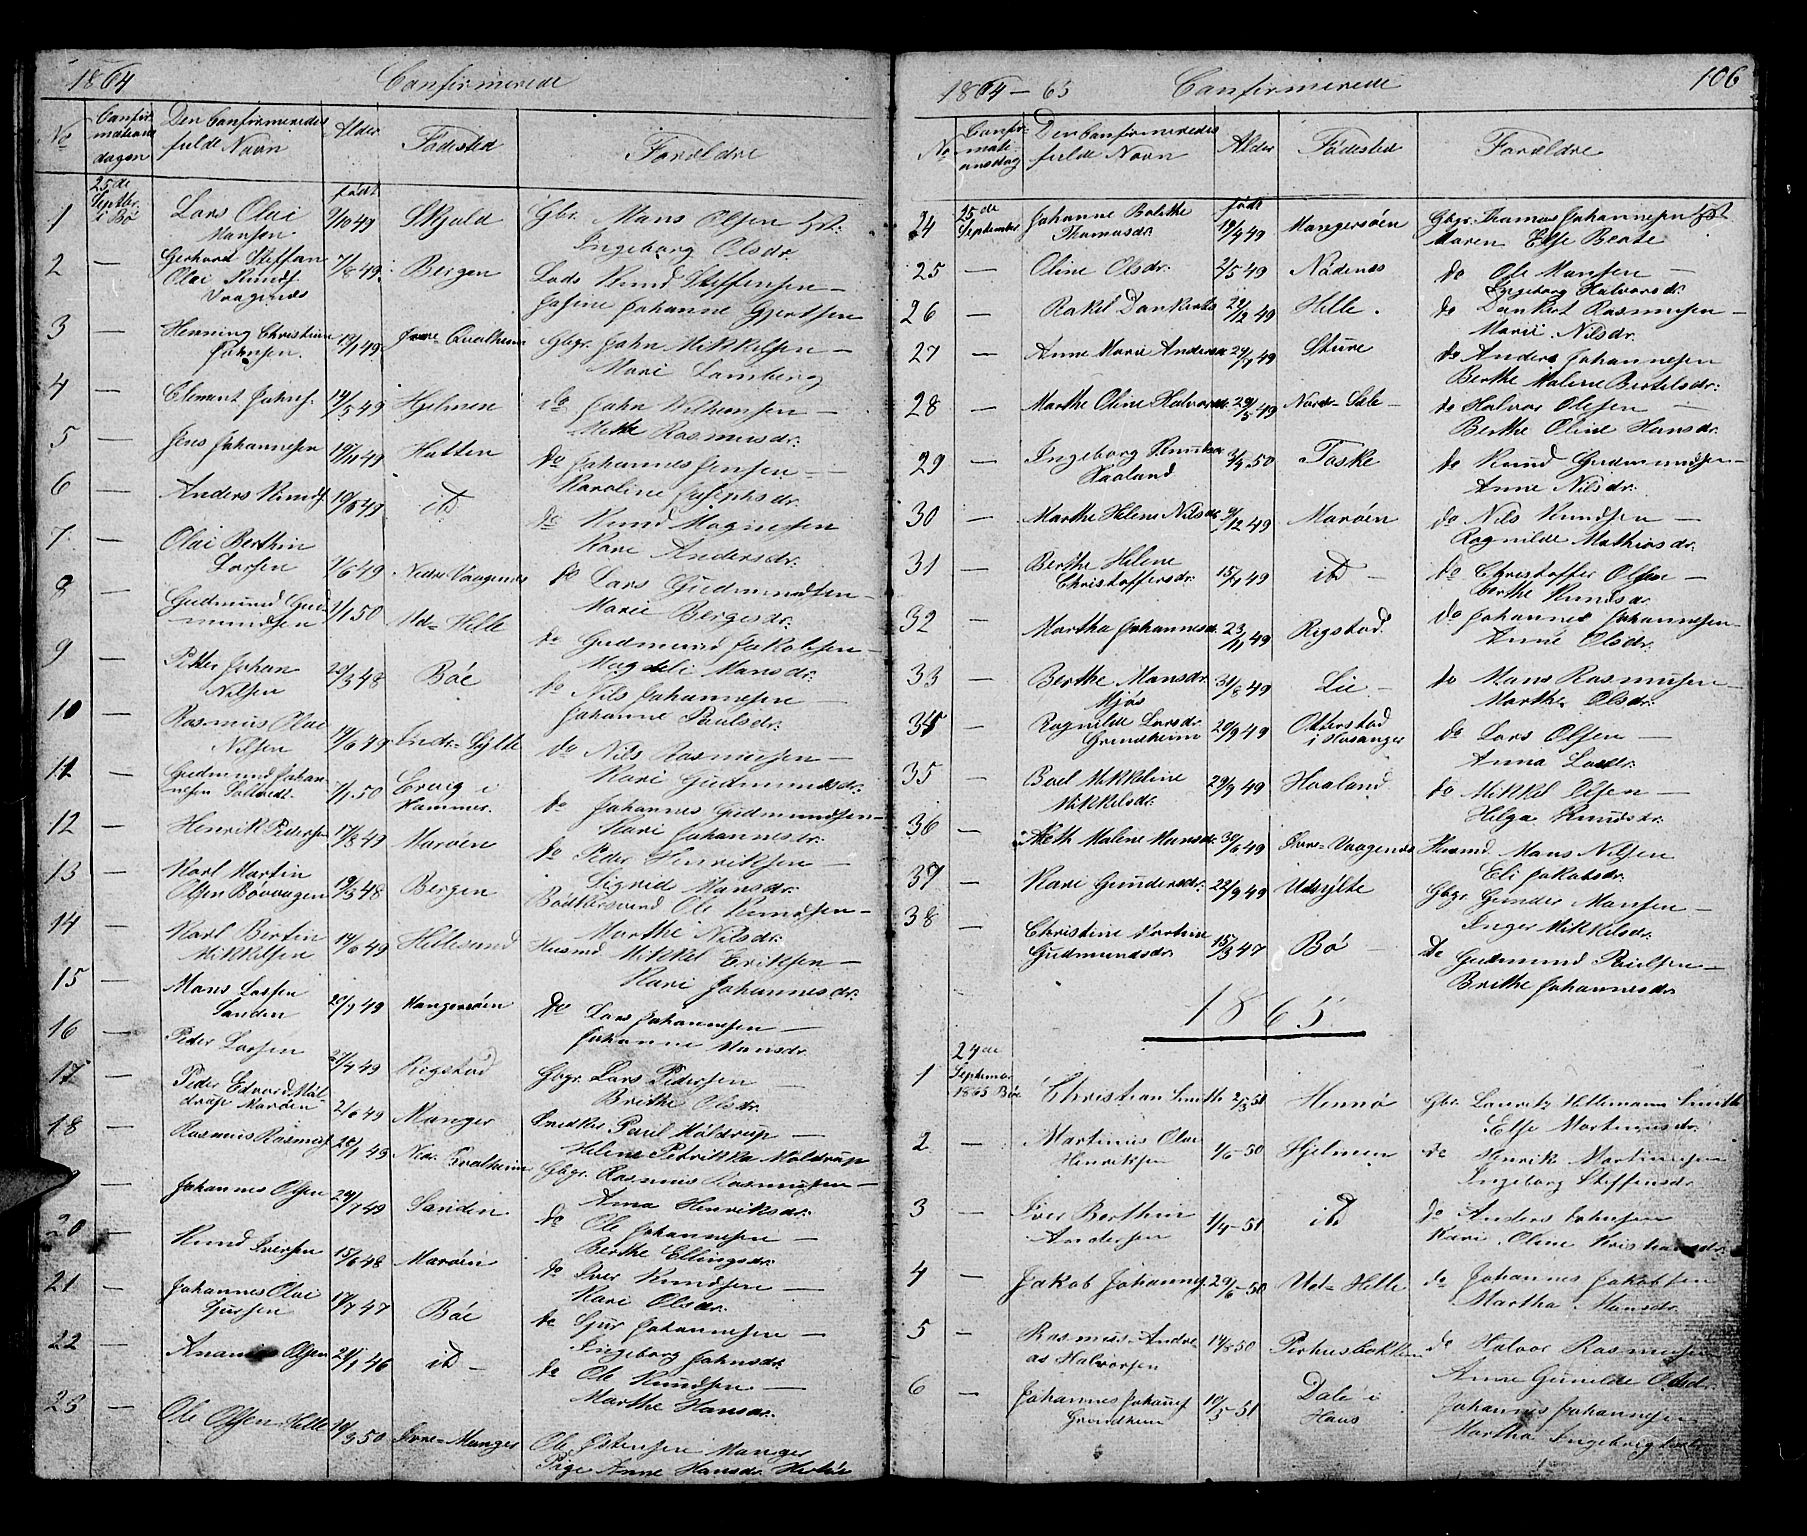 1864 Confirmerede
No Confir- mations dagen Den Confirmeredes fulde Navn Alder Fødested Forældre
1 25de Septbr. i Bø Lars Olai Mansen født 9/10 49 Skjold Gbr. Mans Olsen
Ingeborg Olsdr.
2 — Gerhard Steffan Olai Knuds. Vaagenæs 7/8 49 Bergen Lods Knud Steffensen —
Josine Johanne Gjertsen
3 — Henning Christian Johnsen 49 Øvre-Qvalheim Gbgr. John Mikkelsen —
Mari Lamberg
4 — Clement Johns. 19/5 49 Hjelmen do John Willumsen —
Mette Rasmusdr.
5 — Jens Johannesen 19/11 49 Hatten do Johannes Jensen —
Karoline Josephsdr.
6 — Anders Knuds. 19/6 49 id do Knud Magnesen
Kari Andersdr.
7 — Olai Berthin Larsen 1/6 49 Nedre Vaagenes do Lars Gudmundsen —
Marie Bergesdr.
8 — Gudmund Gudmundsen 1/1 50 Ud-Hille do Gudmund Jakobsen —
Magdeli Mansdr.
9 — Petter Johan Nilsen 20/3 48 Bøe do Nils Johannesen —
Johanne Paulsdr.
10 — Rasmus Olai Nilsen 19/6 49 Indr-Sylte do Nils Rasmussen —
Kari Gudmundsdr.
11 — Gudmund Johannesen 7/1 50 Ervig i Hammer. do Johannes Gudmundsen —
Kari Johannesdr.
12 — Henrik Pedersen 17/8 49 Marøen do Peder Henriksen —
Sigrid Hansdr.
13 — Karl Martin Olsen Bøvaagen 19/3 48 Bergen Bødkersvend Ole Knudsen —
Marthe Nilsdr.
14 — Karl Bertin Mikkelsen 14/6 49 Hillesund Husmd Mikkel Eriksen —
Kari Johannesdr.
15 — Mans Larsen Sanden 49 Mangersøen do Lars Johannesen —
Johanne Mansdr.
16 — Peder Larsen 49 Rigstad Gbgr. Lars Pedersen —
Brithe Olsdr.
17 — Peder Edvard Møldrup Marøen 2/6 49 Manger Snedker Paul Møldrup —
Helene Petrikka Møldrup
18 — Rasmus Rasmuss. 20/1 49 Ned. Qvalheim Gbgr. Rasmus Rasmussen —
Anna Henriksdr.
— Johannes Olsen 49 Sanden do Ole Johannesen —
Berthe Ellingsdr.
20 — Knud Iversen 15/6 48 Marøen do Iver Knudsen —
Kari Olsdr.
21 — Johannes Olai Sjursen 17/7 47 Bøe do Sjur Johannesen —
Ingeborg Johnsdr.
22 — Ananias Olsen 24/1 46 id — do Ole Knudsen —
Marthe Hansdr.
23 — Ole Olsen Hille 19/3 50 Øvre-Manger Ole Østensen Manger
Pige Anne Hansdr.
1864 — 65 Confirmerede 106
No Confir- mati- onsdag Den Confirmeredes fulde Navn Alder Fødested Forældre
24 25de September Johanne Bolethe Thomasdr. født 19/4 49 Mangersøen Gbgr. Thomas Johannesen
Maren Else Bente
25 — Oline Olsdr. 2/5 49 Nødenes do Ole Mansen —
Ingeborg Halvorsdr.
26 — Rakel Dankertsdr 29/12 49 Hille. do Dankert Rasmussen —
Marie Nilsdr.
27 — Anne Marie Andersdr 49 Sture do Anders Johannesen
Berthe Malene Bertelsdr.
28 — Marthe Oline Halvorsdr. 29/5 49 Nordr-Sæle do Halvor Olesen —
Berthe Oline Hansdr.
29 — Ingeborg Knudsdr Kaaland 50 Toske do Knud Gudmundsen —
Anne Nilsdr.
30 — Marthe Helene Nilsdr 9/12 49 Marøen do Nils Knudsen —
Ragnilde Mathiasdr.
31 — Berthe Helene Christoffersdr. 15/1 49 id — do Christoffer Olsen —
Berthe Knudsdr.
32 — Martha Johannesdr. 23/11 49 Rigstad do Johannes Johannesen —
Anne Olsdr.
33 — Berthe Mansdr. Mjøs 31/8 49 Lie — do Mans Rasmussen —
Marthe Olsdr.
34 — Ragnilde Larsdr. Grindheim 20/9 49 Otterstad i Hosanger do Lars Olsen —
Anna Larsdr.
35 — Boel Mikkeline Mikkelsdr. 29/9 49 Haaland do Mikkel Olsen —
Helga Knudsdr.
36 — Meth Malene Mansdr. 30/6 49 Øvre-Vaagenes Husmd Mans Nilsen
Eli Jakobsdr.
37 — Kari Gundersdr. 22/9 49 Udsylte Gbgr Gunder Mansen —
Inger Mikkelsdr.
38 — Christine Gudmundsdr. 15/3 47 Bø — do Gudmund Paulsen —
Brithe Johannesdr.
1865
1 24de September 1865 Bøe Christian Smith 2/3 51 Hennø Gbr. Lauritz Hellemann Smith
Else Mortinusdr.
2 — Martinus Olai Henriksen 1/6-50 Hjelmen do Henrik Martinusen
Ingeborg Steffensdr.
3 — Iver Berthin Andersen 1/4-51 id do Anders Johnsen
Kari Oline Kristiansdr.
4 — Jakob Johannes. 29/6-50 Ud-Hille do Johannes Jakobsen
Martha Mansdr.
5 — Rasmus Andreas Halvorsen 14/8 50 do Halvor Rasmussen
Anne Gunilde Olsdr.
6 — Johannes Johannes. Grondheim 19/5-51 Dale i Haus Johannes Johannesen
Martha